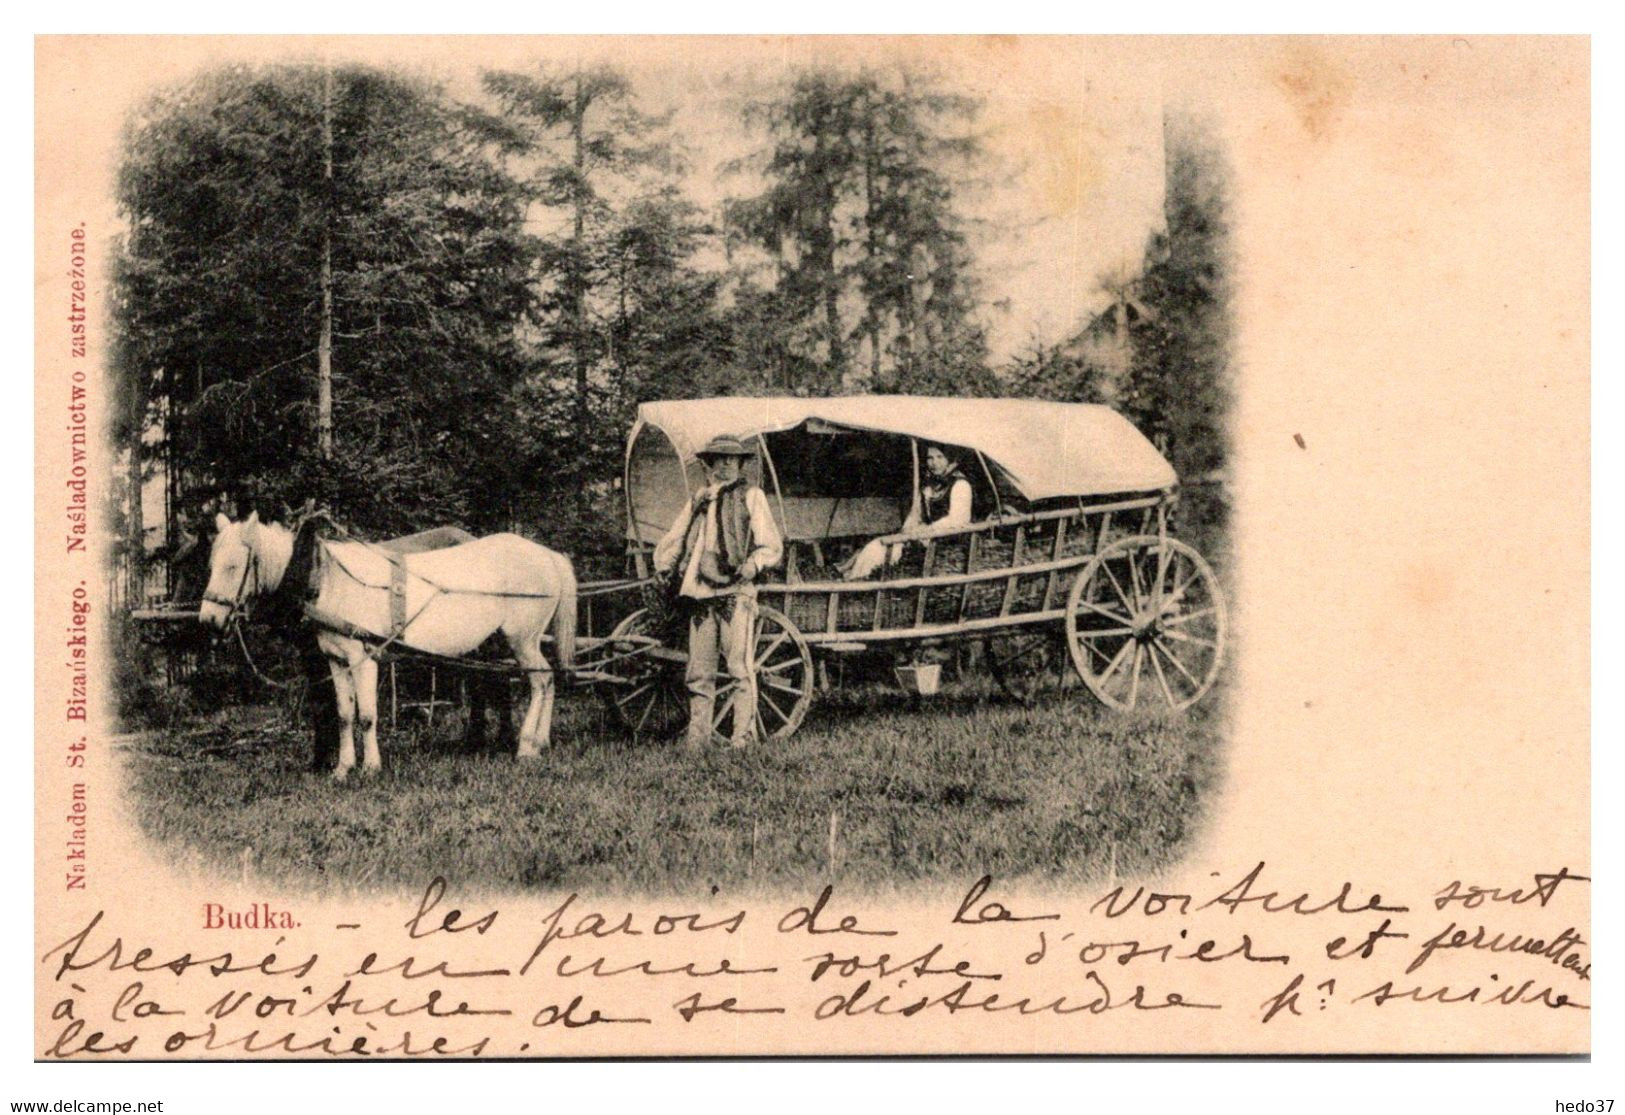 Nakładem St. Bizańskiego. Naśladownictwo zastrzeżone.
Budka. – les parois de la voiture sont
tressés en une sorte d'osier et permettent
à la voiture de se distendre pr suivre
les ornières.
www.delcampe.net
hedo37